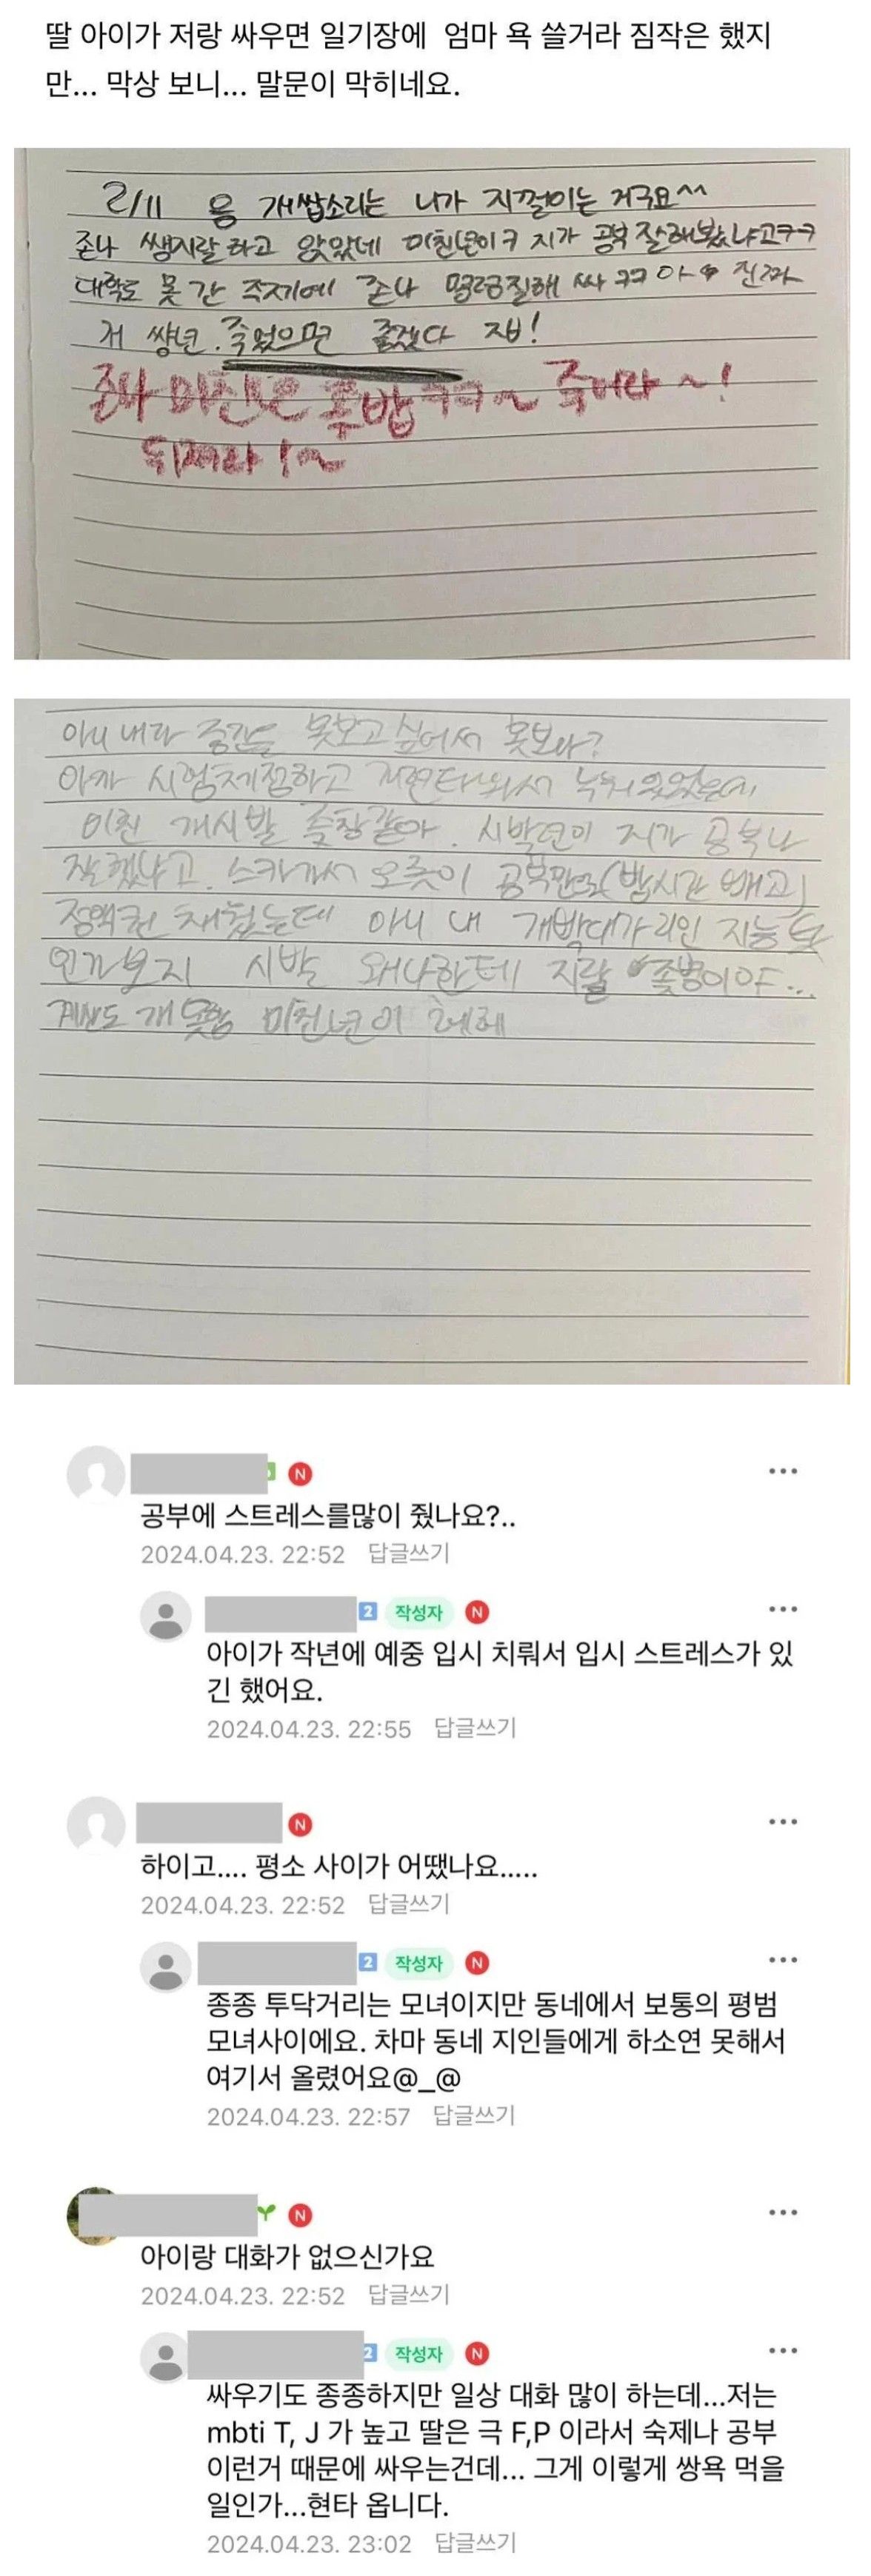 딸 아이가 저랑 싸우면 일기장에 엄마 욕 쓸거라 짐작은 했지
만... 막상 보니... 말문이 막히네요.
2/11 응 개쌉소리는 니가 지껄이는 거구요^^
존나 쌩지랄하고 앉았네 미친년이ㅋ 지가 공부 잘해봤냐고ㅋㅋ
대학도 못 간 주제에 존나 명령질해 싸 ㅋㅋ 아 진짜
저 썅년. 죽었으면 좋겠다 ㅈㅂ!
존나 미친년 좆밥ㅋㅋ~ 죽어라~!
뒤져라!~
아니 내가 중간을 못보고 싶어서 못보나?
아까 시험 채점하고 누워있었는데
미친 개시발 같아. 시박년이 지가 공부나
잘했냐고. 스카가서 오롯이 공부만으로(밥시간 빼고)
정액권 채웠는데 아니 내 개빡대가리인 지능
인가보지 시박 왜 나한테 지랄 좆병이야...
계산도 개못함 미친년이 헤헤
공부에 스트레스를많이 줬나요?..
2024.04.23. 22:52 답글쓰기
2 작성자 N
아이가 작년에 예중 입시 치뤄서 입시 스트레스가 있
긴 했어요.
2024.04.23. 22:55 답글쓰기
N
하이고.... 평소 사이가 어땠나요.....
2024.04.23. 22:52 답글쓰기
2 작성자 N
종종 투닥거리는 모녀이지만 동네에서 보통의 평범
모녀사이에요. 차마 동네 지인들에게 하소연 못해서
여기서 올렸어요@_@
2024.04.23. 22:57 답글쓰기
N
아이랑 대화가 없으신가요
2024.04.23. 22:52 답글쓰기
2 작성자 N
싸우기도 종종하지만 일상 대화 많이 하는데...저는
mbti T, J 가 높고 딸은 극 F,P 이라서 숙제나 공부
이런거 때문에 싸우는건데... 그게 이렇게 쌍욕 먹을
일인가...현타 옵니다.
2024.04.23. 23:02 답글쓰기